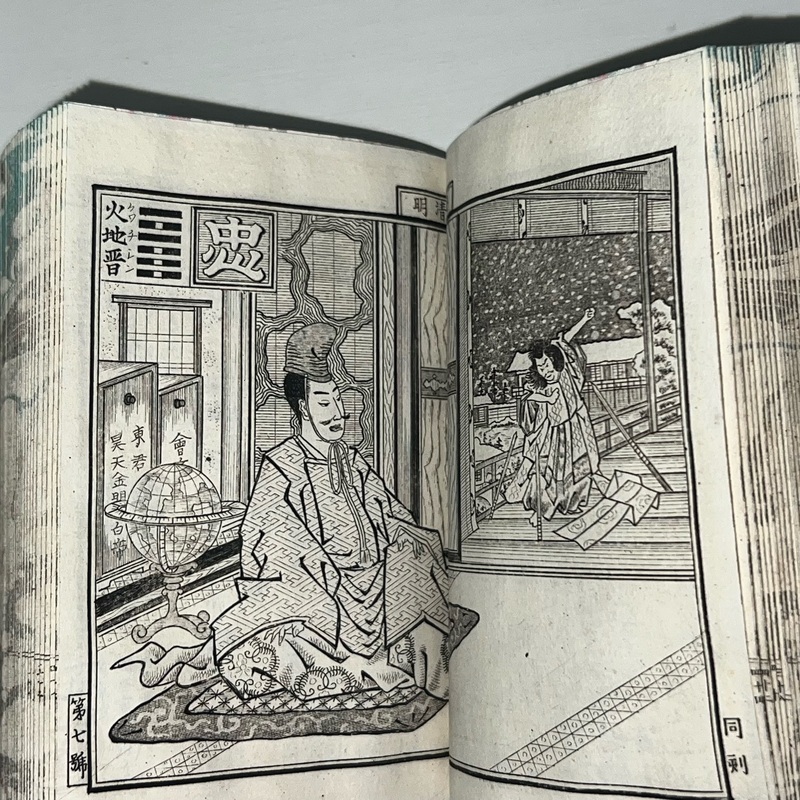 清明
忠
火地晋
クワチシン
會
東君
昊天金闕白帝
第七號
同刻